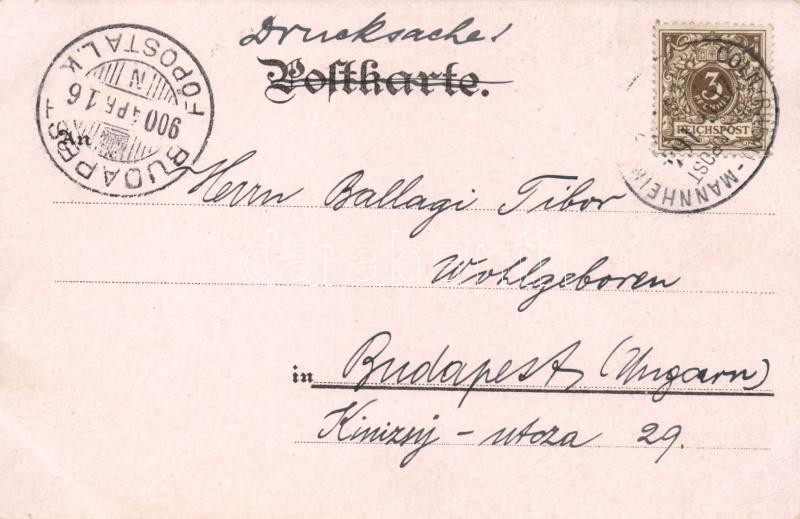 Drucksache!
Postkarte.
BUDAPEST
FŐPOSTA I.K
900 APR 16
N
3
PFENNIG
REICHSPOST
CÖLN
MANNHEIM
POST
An
Herrn Ballagi Tibor
Wohlgeboren
in Budapest (Ungarn)
Kinizsÿ-utcza 29.